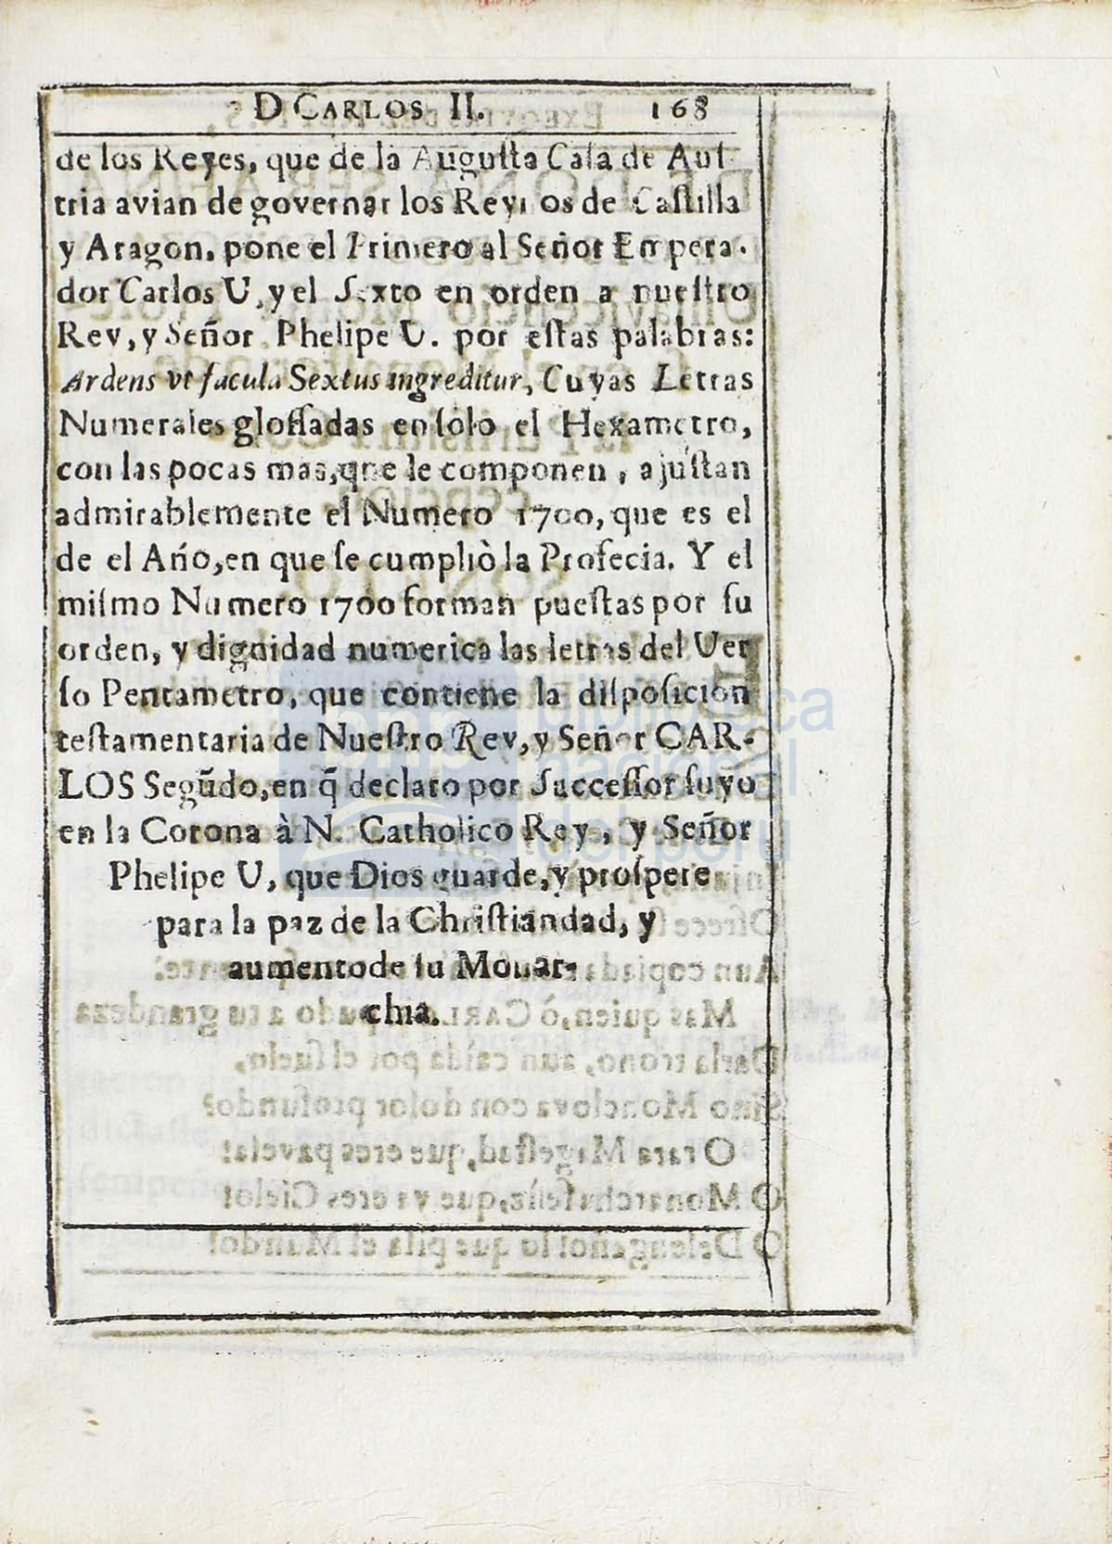 D CARLOS II. 168
de los Reyes, que de la Augusta Casa de Aus-
tria avian de governar los Reynos de Castilla
y Aragon, pone el Primero al Señor Empera-
dor Carlos U, y el Sexto en orden a nuestro
Rey, y Señor Phelipe U. por estas palabras:
Ardens vt facula Sextus ingreditur, Cuyas Letras
Numerales glossadas en solo el Hexametro,
con las pocas mas, que le componen, ajustan
admirablemente el Numero 1700, que es el
de el Año, en que se cumpliò la Profecia. Y el
mismo Numero 1700 forman puestas por su
orden, y dignidad numerica las letras del Ver
so Pentametro, que contiene la disposicion
testamentaria de Nuestro Rey, y Señor CAR-
LOS Segũdo, en q̃ declaro por Successor suyo
en la Corona à N. Catholico Rey, y Señor
Phelipe U, que Dios guarde, y prospere
para la paz de la Christiandad, y
aumento de su Monar-
chia.
biblioteca
nacional
del perú